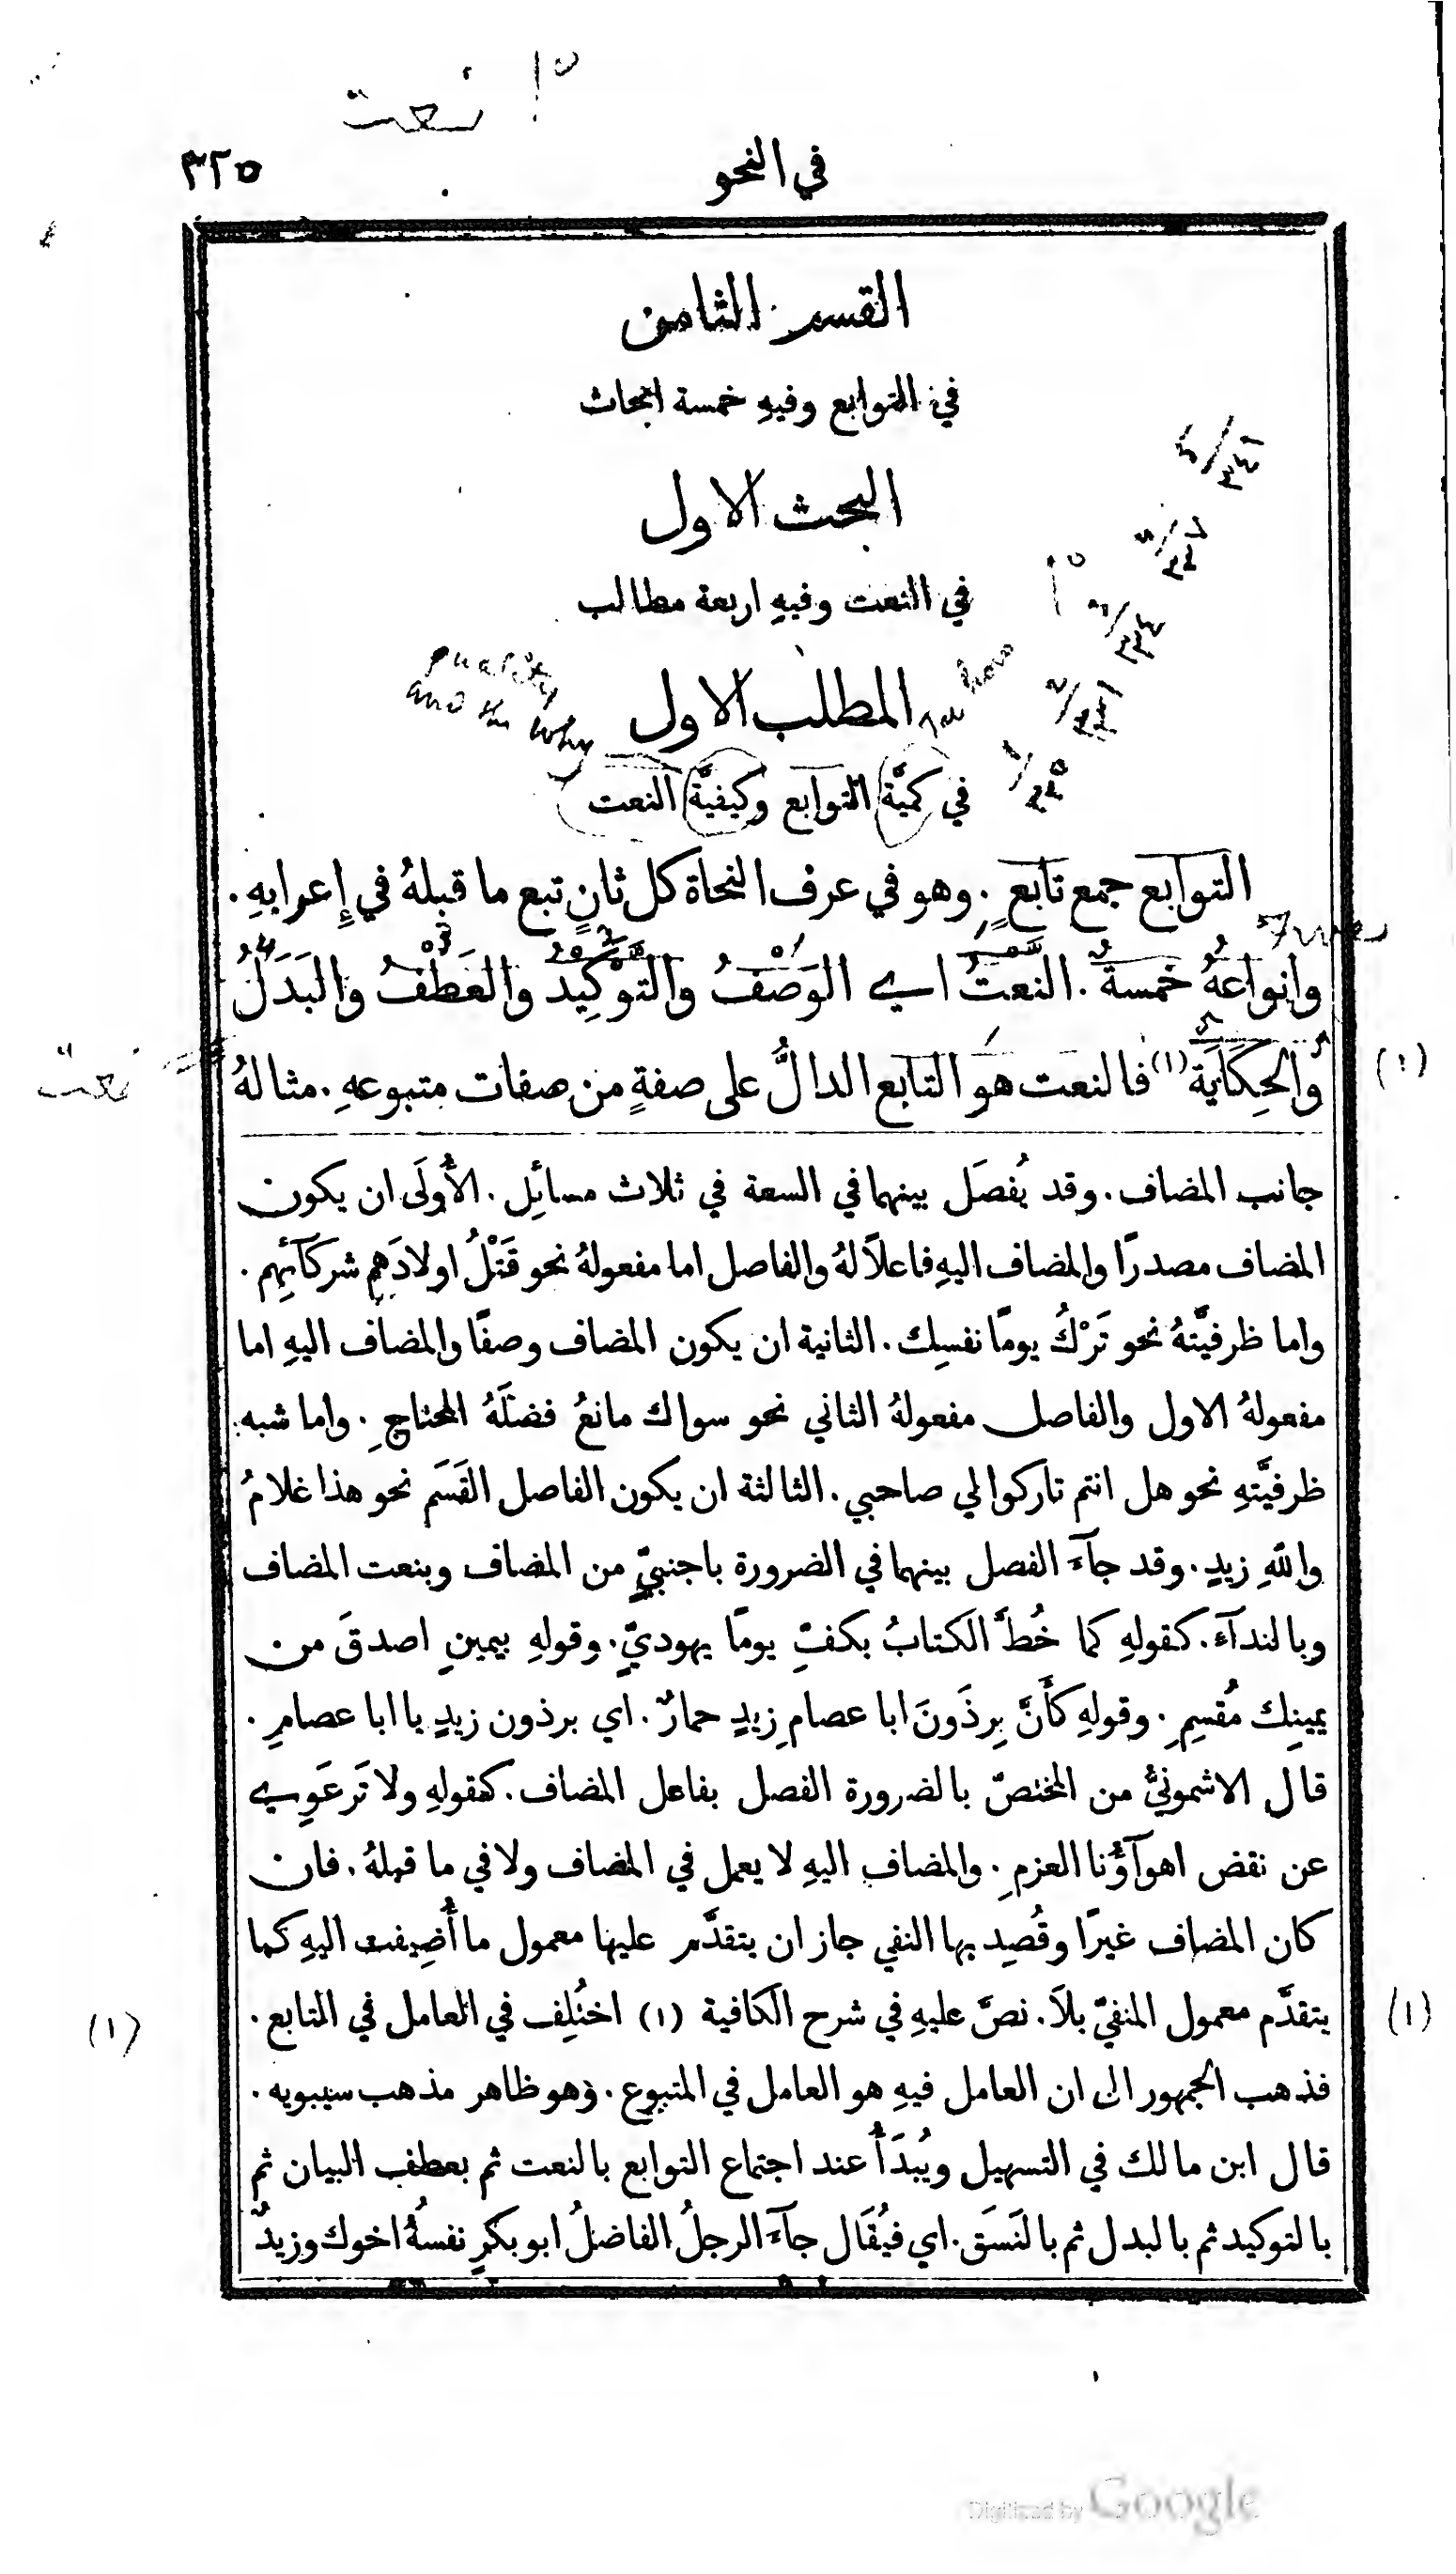 ١٥ نعت
في النحو ٣٢٥
القسم الثامن
في التوابع وفيهِ خمسة ابحاث
البحث الاول
في النعت وفيهِ اربعة مطالب
quality
and the why
المطلب الاول
how
في كميَّة التوابع وكيفيَّة النعت
التوابع جمع تابعٍ. وهو في عرف النحاة كل ثانٍ تبع ما قبلهُ في إِعرابهِ.
وانواعهُ خمسةٌ. النعتُ اي الوَصْفُ والتَوْكِيد والعَطْفُ والبَدَلُ
والحِكَايَة (١) فالنعت هو التابع الدالُّ على صفةٍ من صفات متبوعهِ. مثالهُ
(١)
نعت
جانب المضاف. وقد يُفصَل بينهما في السعة في ثلاث مسائِل. الأُولَى ان يكون
المضاف مصدرًا والمضاف اليهِ فاعلاً لهُ والفاصل اما مفعولهُ نحو قَتْلُ اولادَهم شركآئِهم.
واما ظرفيَّتهُ نحو تَرْكُ يومًا نفسِك. الثانية ان يكون المضاف وصفًا والمضاف اليهِ اما
مفعولهُ الاول والفاصل مفعولهُ الثاني نحو سواك مانعُ فضلَهُ المحتاجِ. واما شبه
ظرفيَّتهِ نحو هل انتم تاركوا لي صاحبي. الثالثة ان يكون الفاصل القَسَم نحو هذا غلامُ
واللهِ زيدٍ. وقد جآءَ الفصل بينهما في الضرورة باجنبيٍّ من المضاف وبنعت المضاف
وبالندآءَ. كقولهِ كما خُطَّ الكتابُ بكفِّ يومًا يهوديٍّ. وقولهِ بيمينِ اصدقَ من
يمينِك مُقسِمِ. وقولهِ كأَنَّ بِرذَونَ ابا عصامِ زيدٍ حمارٌ. اي برذون زيدٍ يا ابا عصامِ.
قال الاشمونيُّ من المختصّ بالضرورة الفصل بفاعل المضاف. كقولهِ ولا تَرعَوِي
عن نقض اهوآؤُنا العزمِ. والمضاف اليهِ لا يعمل في المضاف ولا في ما قبلهُ. فان
كان المضاف غيرًا وقُصِد بها النفي جاز ان يتقدَّم عليها معمول ما أُضِيفت اليهِ كما
يتقدَّم معمول المنفيّ بلاَ. نصَّ عليهِ في شرح الكافية (١) اختُلِف في العامل في التابع.
(١)
(١)
فذهب الجمهور الى ان العامل فيهِ هو العامل في المتبوع. وهو ظاهر مذهب سيبويه.
قال ابن مالك في التسهيل ويُبدَأُ عند اجتماع التوابع بالنعت ثم بعطف البيان ثم
بالتوكيد ثم بالبدل ثم بالنَسَق. اي فيُقَال جآءَ الرجلُ الفاضلُ ابو بكرٍ نفسهُ اخوك وزيدٌ
Digitized by Google